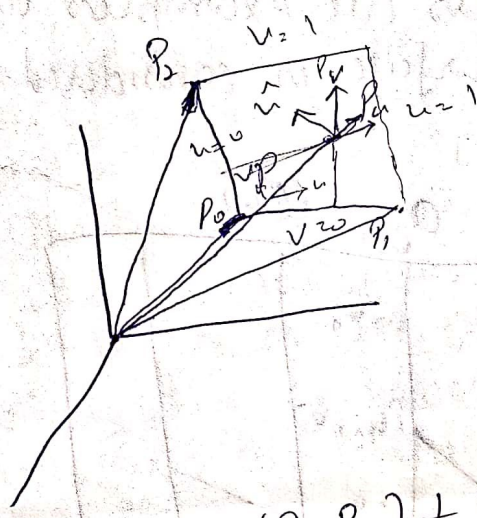 V = 1
P₂
Pᵥ
n̂
Pᵤ
u = 1
u = 0
P₀
u
V = 0
P₁